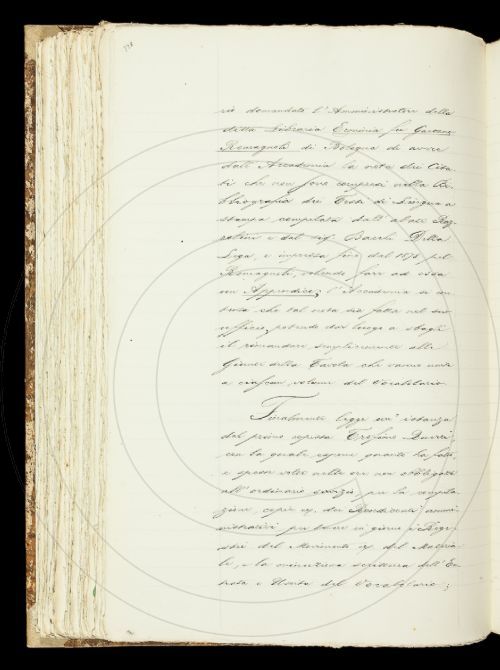 rio domandate l'Amministratore della
ditta Libraria Erminia fu Gaetano
Romagnoli di Bologna di avere
dall'Accademia la nota dei Cita
ti che non sono compresi nella Bi
bliografia dei Testi di Lingua a
stampa, compilata dall'abate Raz
zolini e dal sig. Bacchi Della
Lega, e impressa fino dal 1878 pel
Romagnoli, volendo fare ad essa
un Appendice; l'Accademia
che tal nota sia fatta nel suo
ufficio, potendo dar luogo a sbagli
il rimandare semplicemente alle
Giunte della Tavola che vanno unite
a ciascun volume del Vocabolario.
Finalmente legge un'istanza
dal primo copista Trifone
con la quale espone quanto ha fatto,
e spesse volte nelle ore non obbligate
all'ordinario servizio, per la compila
zione, copie ec. dei Rendiconti ammi
nistrativi, per tenere in giorno i Regi
stri del Movimento ec. del Materia
le, e la minutissima scrittura dell'En
trata e Uscita del Vocabolario;